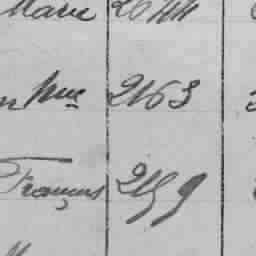 Marie 2644
n Mme 2163
François 2159